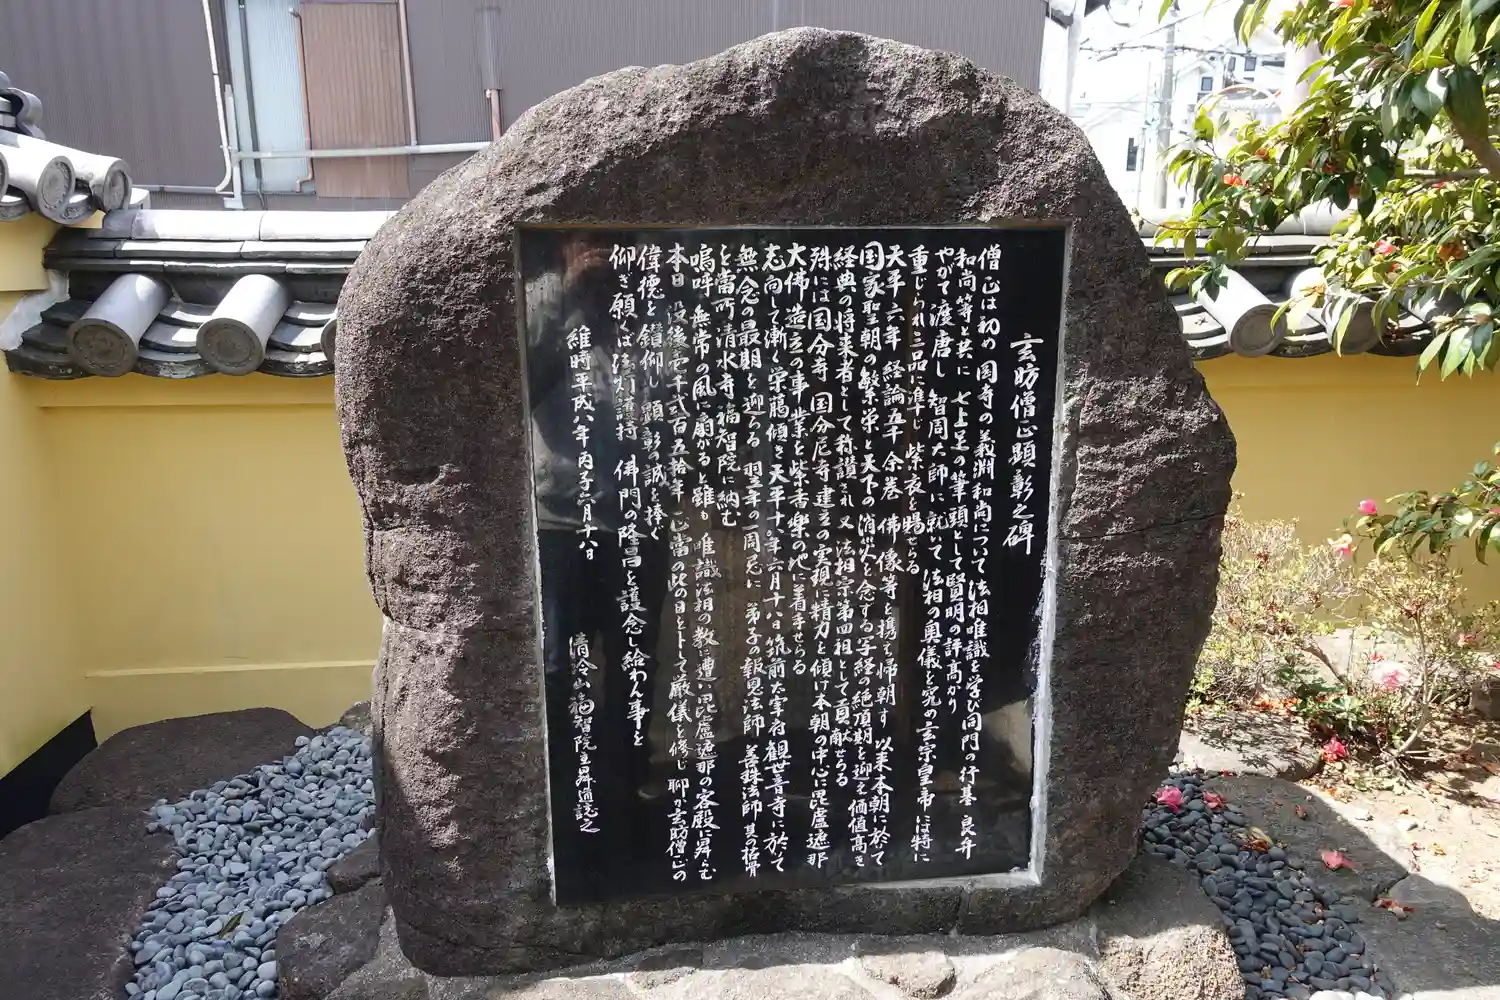 玄昉僧正顕彰之碑
僧正は初め 岡寺の義淵和尚について法相唯識を学び同門の行基 良弁
和尚等と共に 七上足の筆頭として賢明の評高かり
やがて渡唐し 智周大師に就いて 法相の奥儀を究め玄宗皇帝には特に
重じられ三品に準じ 紫衣を賜せらる
天平六年 経論五千余巻 佛像等を携え帰朝す 以来本朝に於て
国家聖朝の繁栄と天下の消災を念ずる写経の絶頂期を迎え価値高き
経典の将来者として称讃され 又 法相宗第四祖として貢献せらる
殊には国分寺 国分尼寺建立の実現に精力を傾け本朝の中心に毘盧遮那
大佛造立の事業を紫香樂の地に着手せらる
志向して漸く栄蕅傾き天平十八年六月十八日筑前太宰府 観世音寺に於て
無念の最期を迎らる 翌年の一周忌に 弟子の報恩法師 善珠法師其の拾骨
を當所清水寺 福智院に納む
嗚呼 無常の風に扇がると雖も 唯識法相の教に遭い毘盧遮那の客殿に昇らむ
本日 没後壱千弐百五拾年 正當の此の日を卜して厳儀を修じ 聊か玄昉僧正の
偉徳を鑽仰し 顕彰の誠を捧ぐ
仰ぎ願くば法灯護持 佛門の隆昌を護念し給わん事を
維時平成八年丙子六月十八日
清冷山福智院主昇道誌之